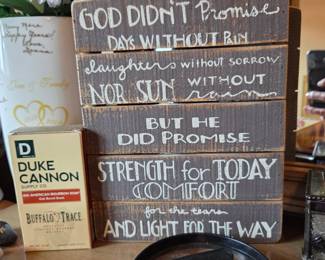 GOD DIDN'T Promise
DAYS WITHOUT PAIN
laughter WITHOUT SORROW
NOR SUN WITHOUT
rain
BUT HE
DID PROMISE
STRENGTH for TODAY
COMFORT
for the tears
AND LIGHT FOR THE WAY
D
DUKE
CANNON
SUPPLY CO.
BIG AMERICAN BOURBON SOAP
Oak Barrel Scent
BUFFALO TRACE